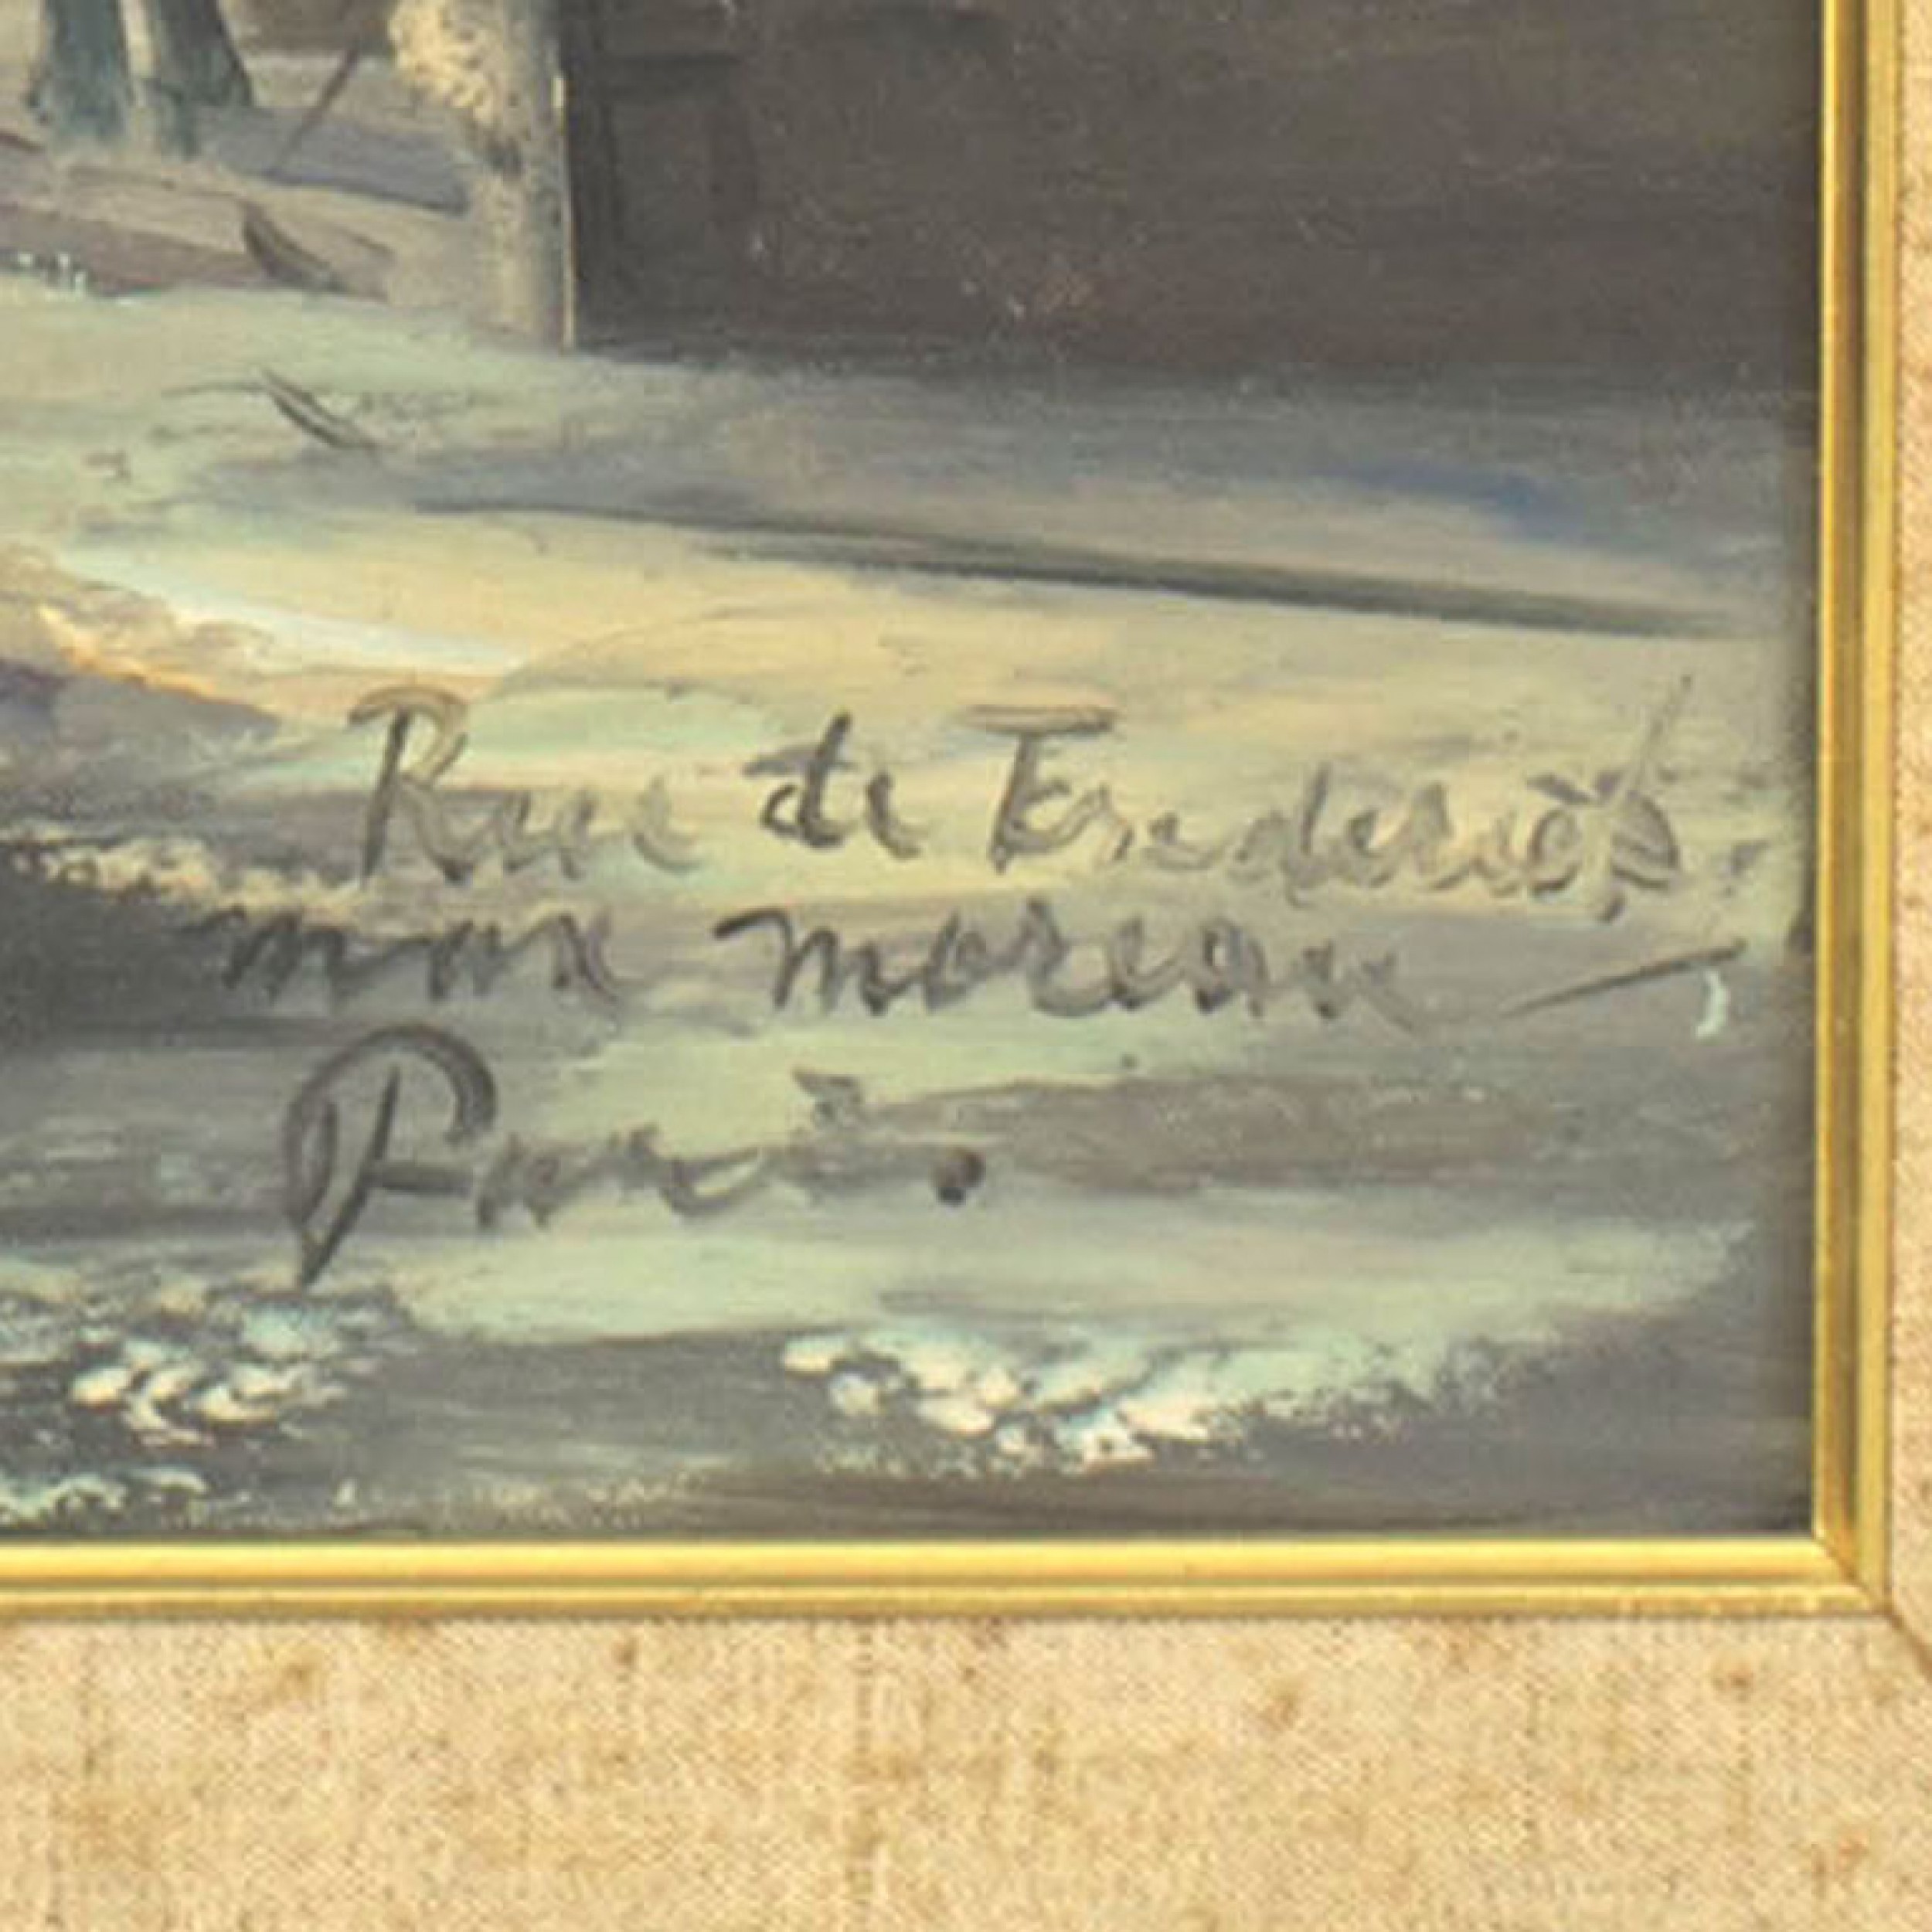 Rue de Frederick
max moreau
Paris